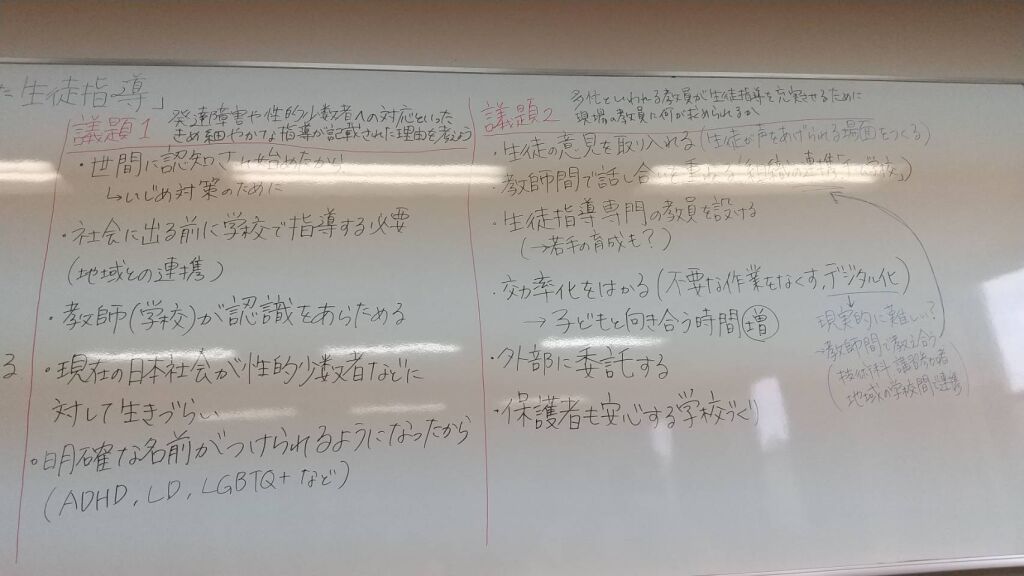 た「生徒指導」
議題1
発達障害や性的少数者への対応といった
きめ細やかな指導が記載された理由を考えよう
・世間に認知され始めたから
↳いじめ対策のために
・社会に出る前に学校で指導する必要
(地域との連携)
・教師(学校)が認識をあらためる
る
・現在の日本社会が性的少数者などに
対して生きづらい
・明確な名前がつけられるようになったから
(ADHD, LD, LGBTQ+ など)
議題2
多忙といわれる教員が生徒指導を充実させるために
現場の教員に何が求められるか
・生徒の意見を取り入れる(生徒が声をあげられる場面をつくる)
・教師間で話し合いを重ねる「組織の連携
学校」
・生徒指導専門の教員を設ける
(→若手の育成も?)
・効率化をはかる(不要な作業をなくす,デジタル化)
→子どもと向き合う時間増
現実的に難しい?
→教師間で教え合う
(技術科
地域の学校間連携)
・外部に委託する
・保護者も安心する学校づくり